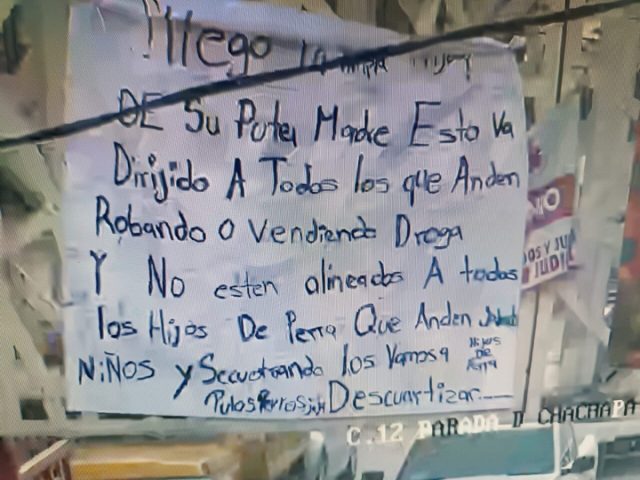 ¡¡llego la
DE Su Puta Madre Esto Va
Dirijido A Todos los que Anden
Robando O Vendiendo Droga
Y No esten alineados A todos
los Hijos De Perra Que Anden
Niños y Secuetrando los Vamos a Hijos De Perra
Putos Perros Descuartizar
C.12 PARADA D CHACHAPA